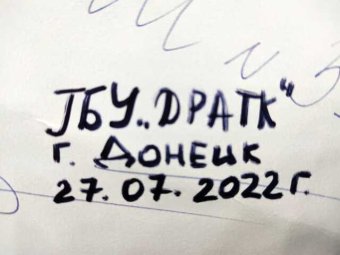 ГБУ „ДРАТК“
г. Донецк
27. 07. 2022 г.